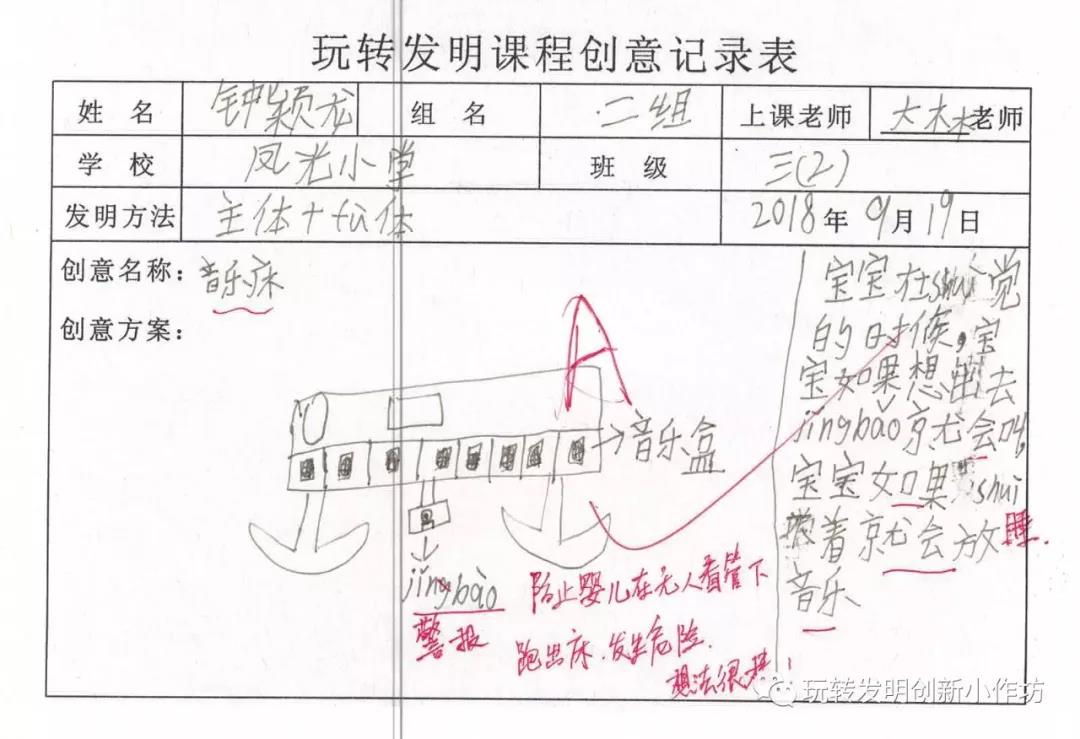 玩转发明课程创意记录表
姓 名 钟颖龙 组 名 二组 上课老师 大木木老师
学 校 凤光小学 班 级 三(2)
发明方法 主体+fù体 2018年9月19日
创意名称:音乐床
创意方案:
A
→音乐盒
jǐngbào
警报
防止婴儿在无人看管下
跑出床.发生危险.
想法很棒!
宝宝在shuì觉
的时候,宝
宝如果想出去
jǐngbǎo京尤会叫,
宝宝如果shuì
着京就会放
睡.
音乐
玩转发明创新小作坊